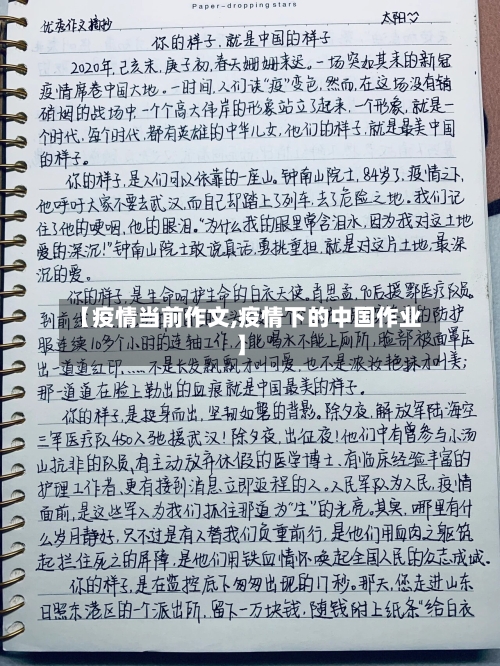 Paper-dropping stars
优秀作文摘抄
太阳
你的样子,就是中国的样子
2020年,己亥末,庚子初,春天姗姗来迟。一场突如其来的新冠
疫情席卷中国大地。一时间,人们谈“疫”变色,然而,在这场没有硝
硝烟的战场中,一个个高大伟岸的形象站立了起来,一个形象,就是一
个时代,每个时代,都有英雄的中华儿女,他们的样子,就是最美中国
的样子。
你的样子,是人们可以依靠的一座山。钟南山院士,84岁了,疫情之下,
他呼吁大家不要去武汉,而自己却踏上了列车,去了危险之地。我们记
住了他的哽咽,他的眼泪。“为什么我的眼里常含泪水,因为我对这土地
爱的深沉!”钟南山院士敢说真话,勇挑重担,就是对这片土地,最深
沉的爱。
你的样子,是生命呵护生命的白衣天使。肖思孟,90后援鄂医疗队员。
到前
的防护
【疫情当前作文,疫情下的中国作业
】
服连续10多个小时的连轴工作,不能喝水不能上厕所,脸部被面罩压
出一道道红印……不是长发飘飘才叫可爱,也不是浓妆艳抹才叫美;
那一道道在脸上勒出的血痕就是中国最美的样子。
你的样子,是挺身而出,坚韧如磐的背影。除夕夜,解放军陆海空
三军医疗队450人驰援武汉!除夕夜,出征夜!他们中有曾参与小汤
山抗非的队员,有主动放弃休假的医学博士,有临床经验丰富的
护理工作者,更有接到消息立即返程的人。人民军队为人民,疫情
面前,是这些军人为我们抓住那道为“生”的光亮。其实,哪里有什
么岁月静好,只不过是有人替我们负重前行,是他们用血肉之躯筑
起拦住死之的屏障,是他们用铁血情怀唤起全国人民的众志成城。
你的样子,是在监控底下匆匆出现的11秒。那天,您走进山东
日照东港区的一个派出所,留下一万块钱,随钱附上纸条“给白衣